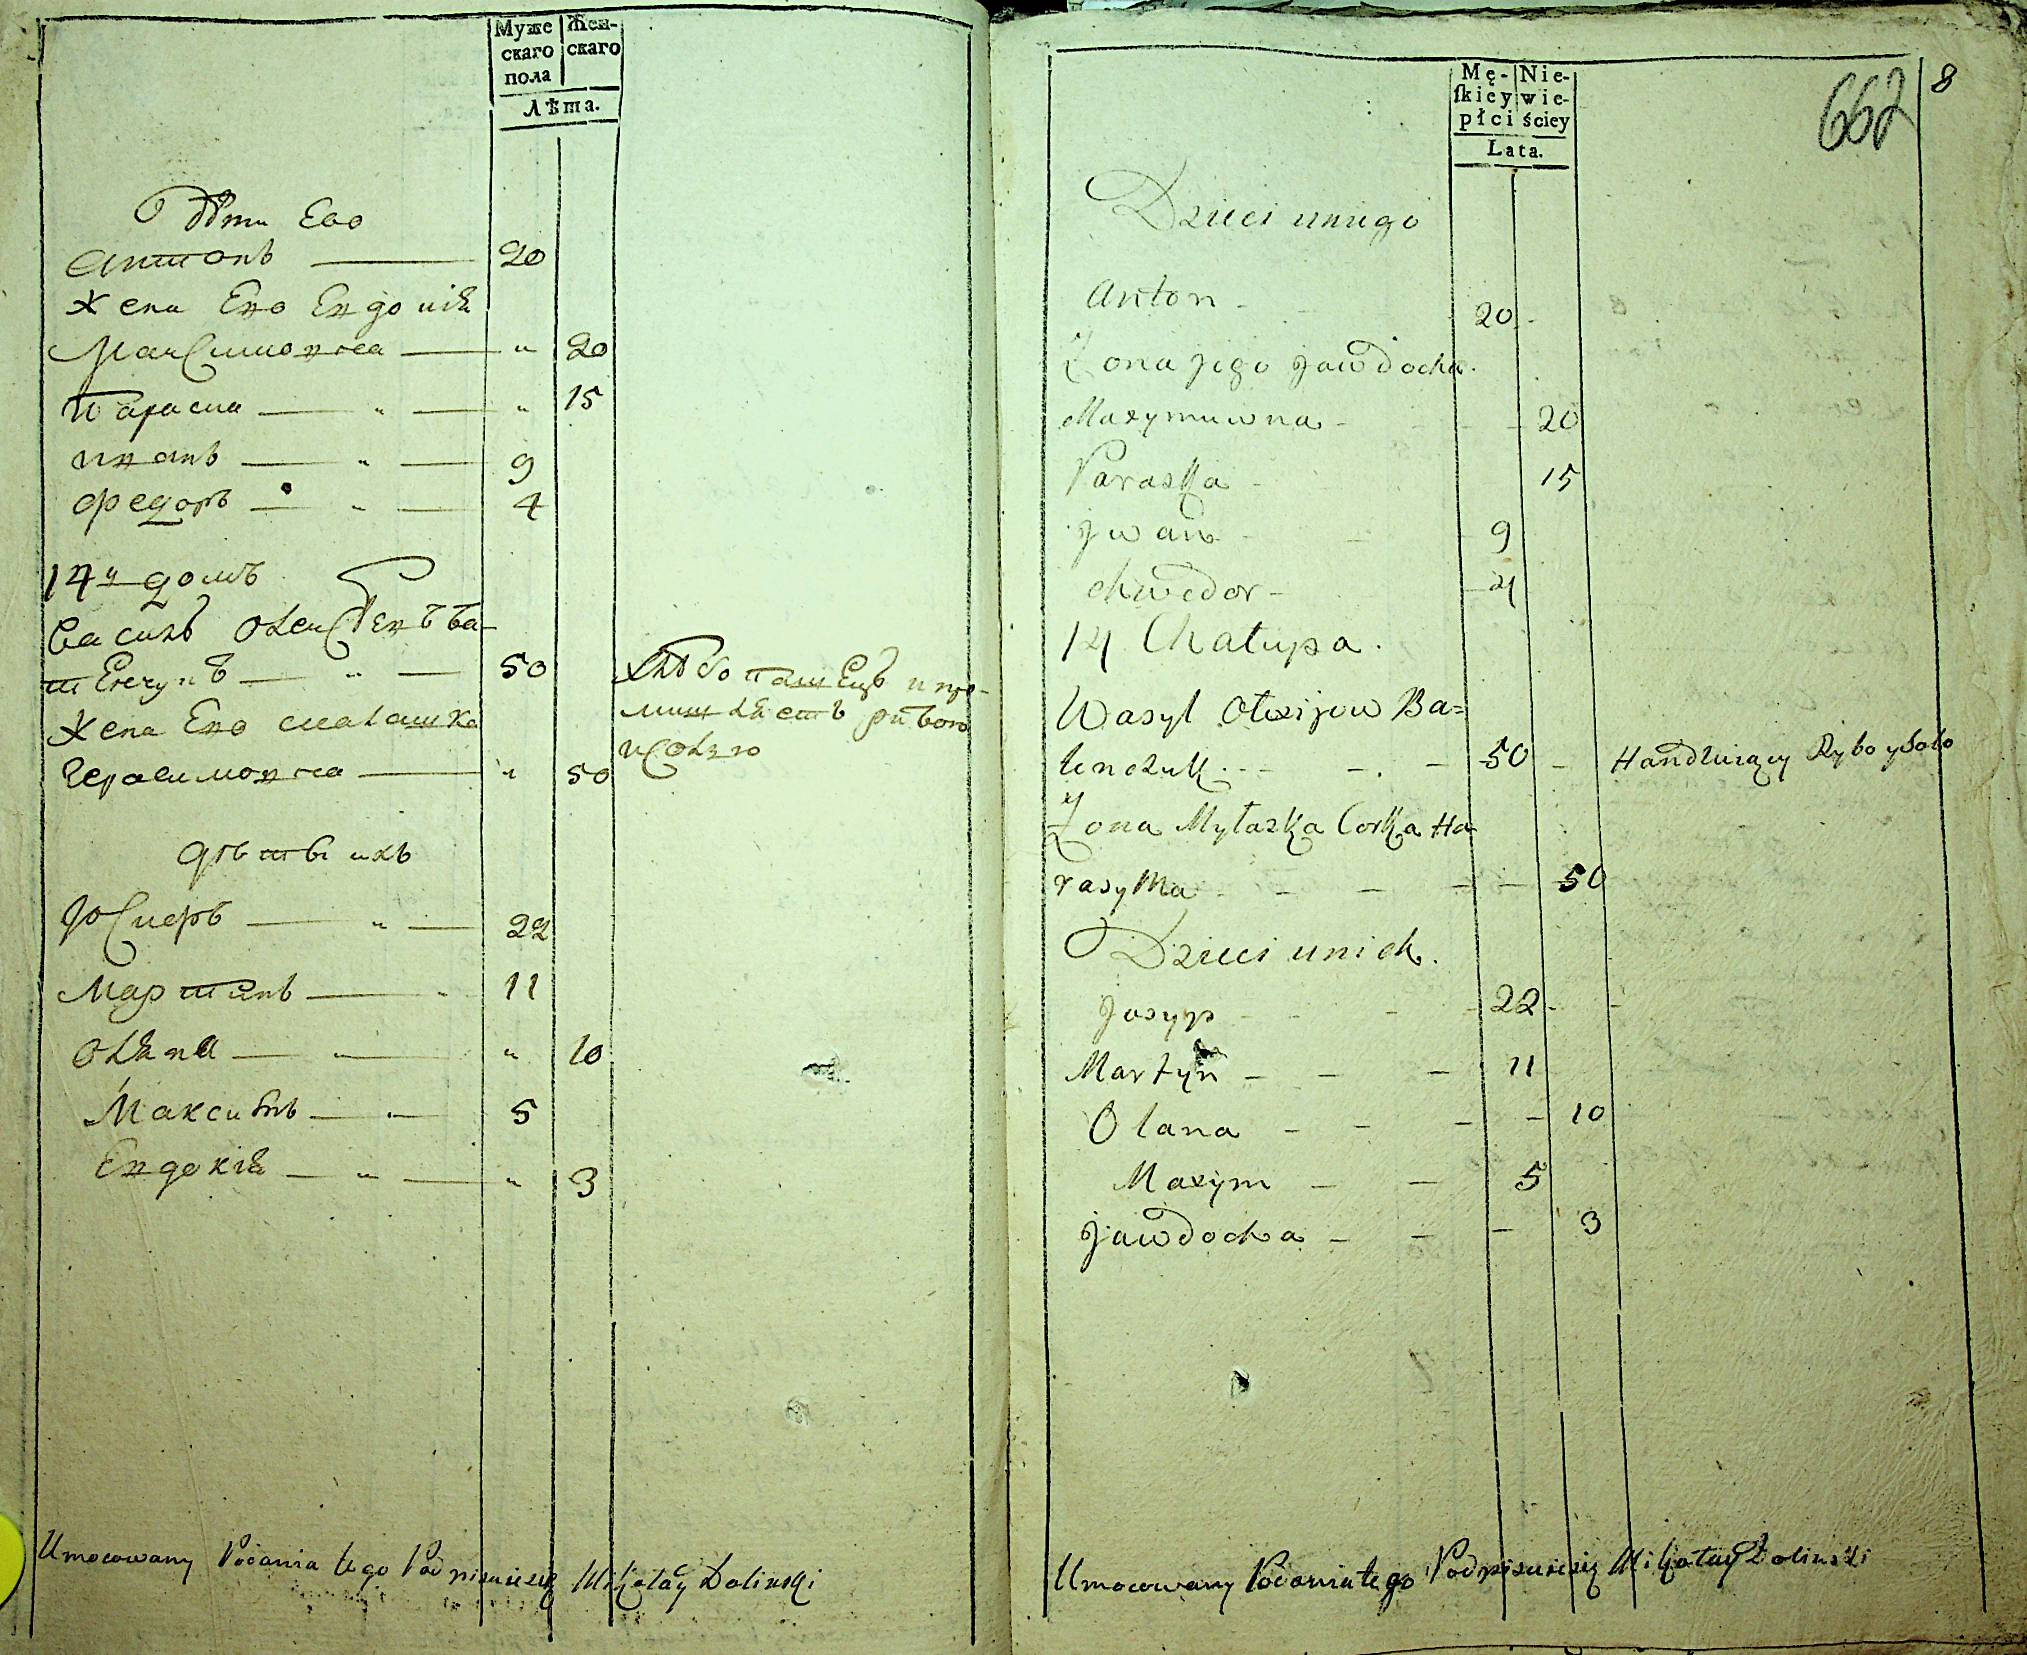 Муже
скаго
пола
Жен-
скаго
Лѣта.
Дѣти Ево
Антонъ 20
Жена Ево Евдокія
Максимовна " 20
Параска " " 15
Иванъ " 9
Федоръ " 4
14й домъ
Василь Олексѣевъ Ба-
тенчукъ " 50
Жена Ево Малашка
Герасимовна " 50
хлѣбопашецъ и про-
рибою
и солью
дѣти ихъ
Юсиѳъ " 22
Мартинъ 11
Оляна " " 10
Максимъ " 5
Евдокія " " 3
Umocowany Podania tego Podpisuie się Mikołay Dolinski
Mę-
skiey
płci
Nie-
wie-
ściey
Lata.
662 8
Dzieci u niego
Anton - 20 -
Żona jego Jawdocha
Maxymuwna - 20
Paraska - 15
Jwan 9
Chwedor - 4
14 Chałupa.
Wasyl Olexijow Ba=
tenczuk - 50 - Handluiący Rybo y Solo
Żona Myłaszka Corka Ha
rasyma - 50
Dzieci u nich.
Josyp - 22 -
Martyn - 11
Olana - 10
Maxym - 5
Jawdocha - 3
Umocowany Podania tego Podpisuie się Mikołay Dolinski